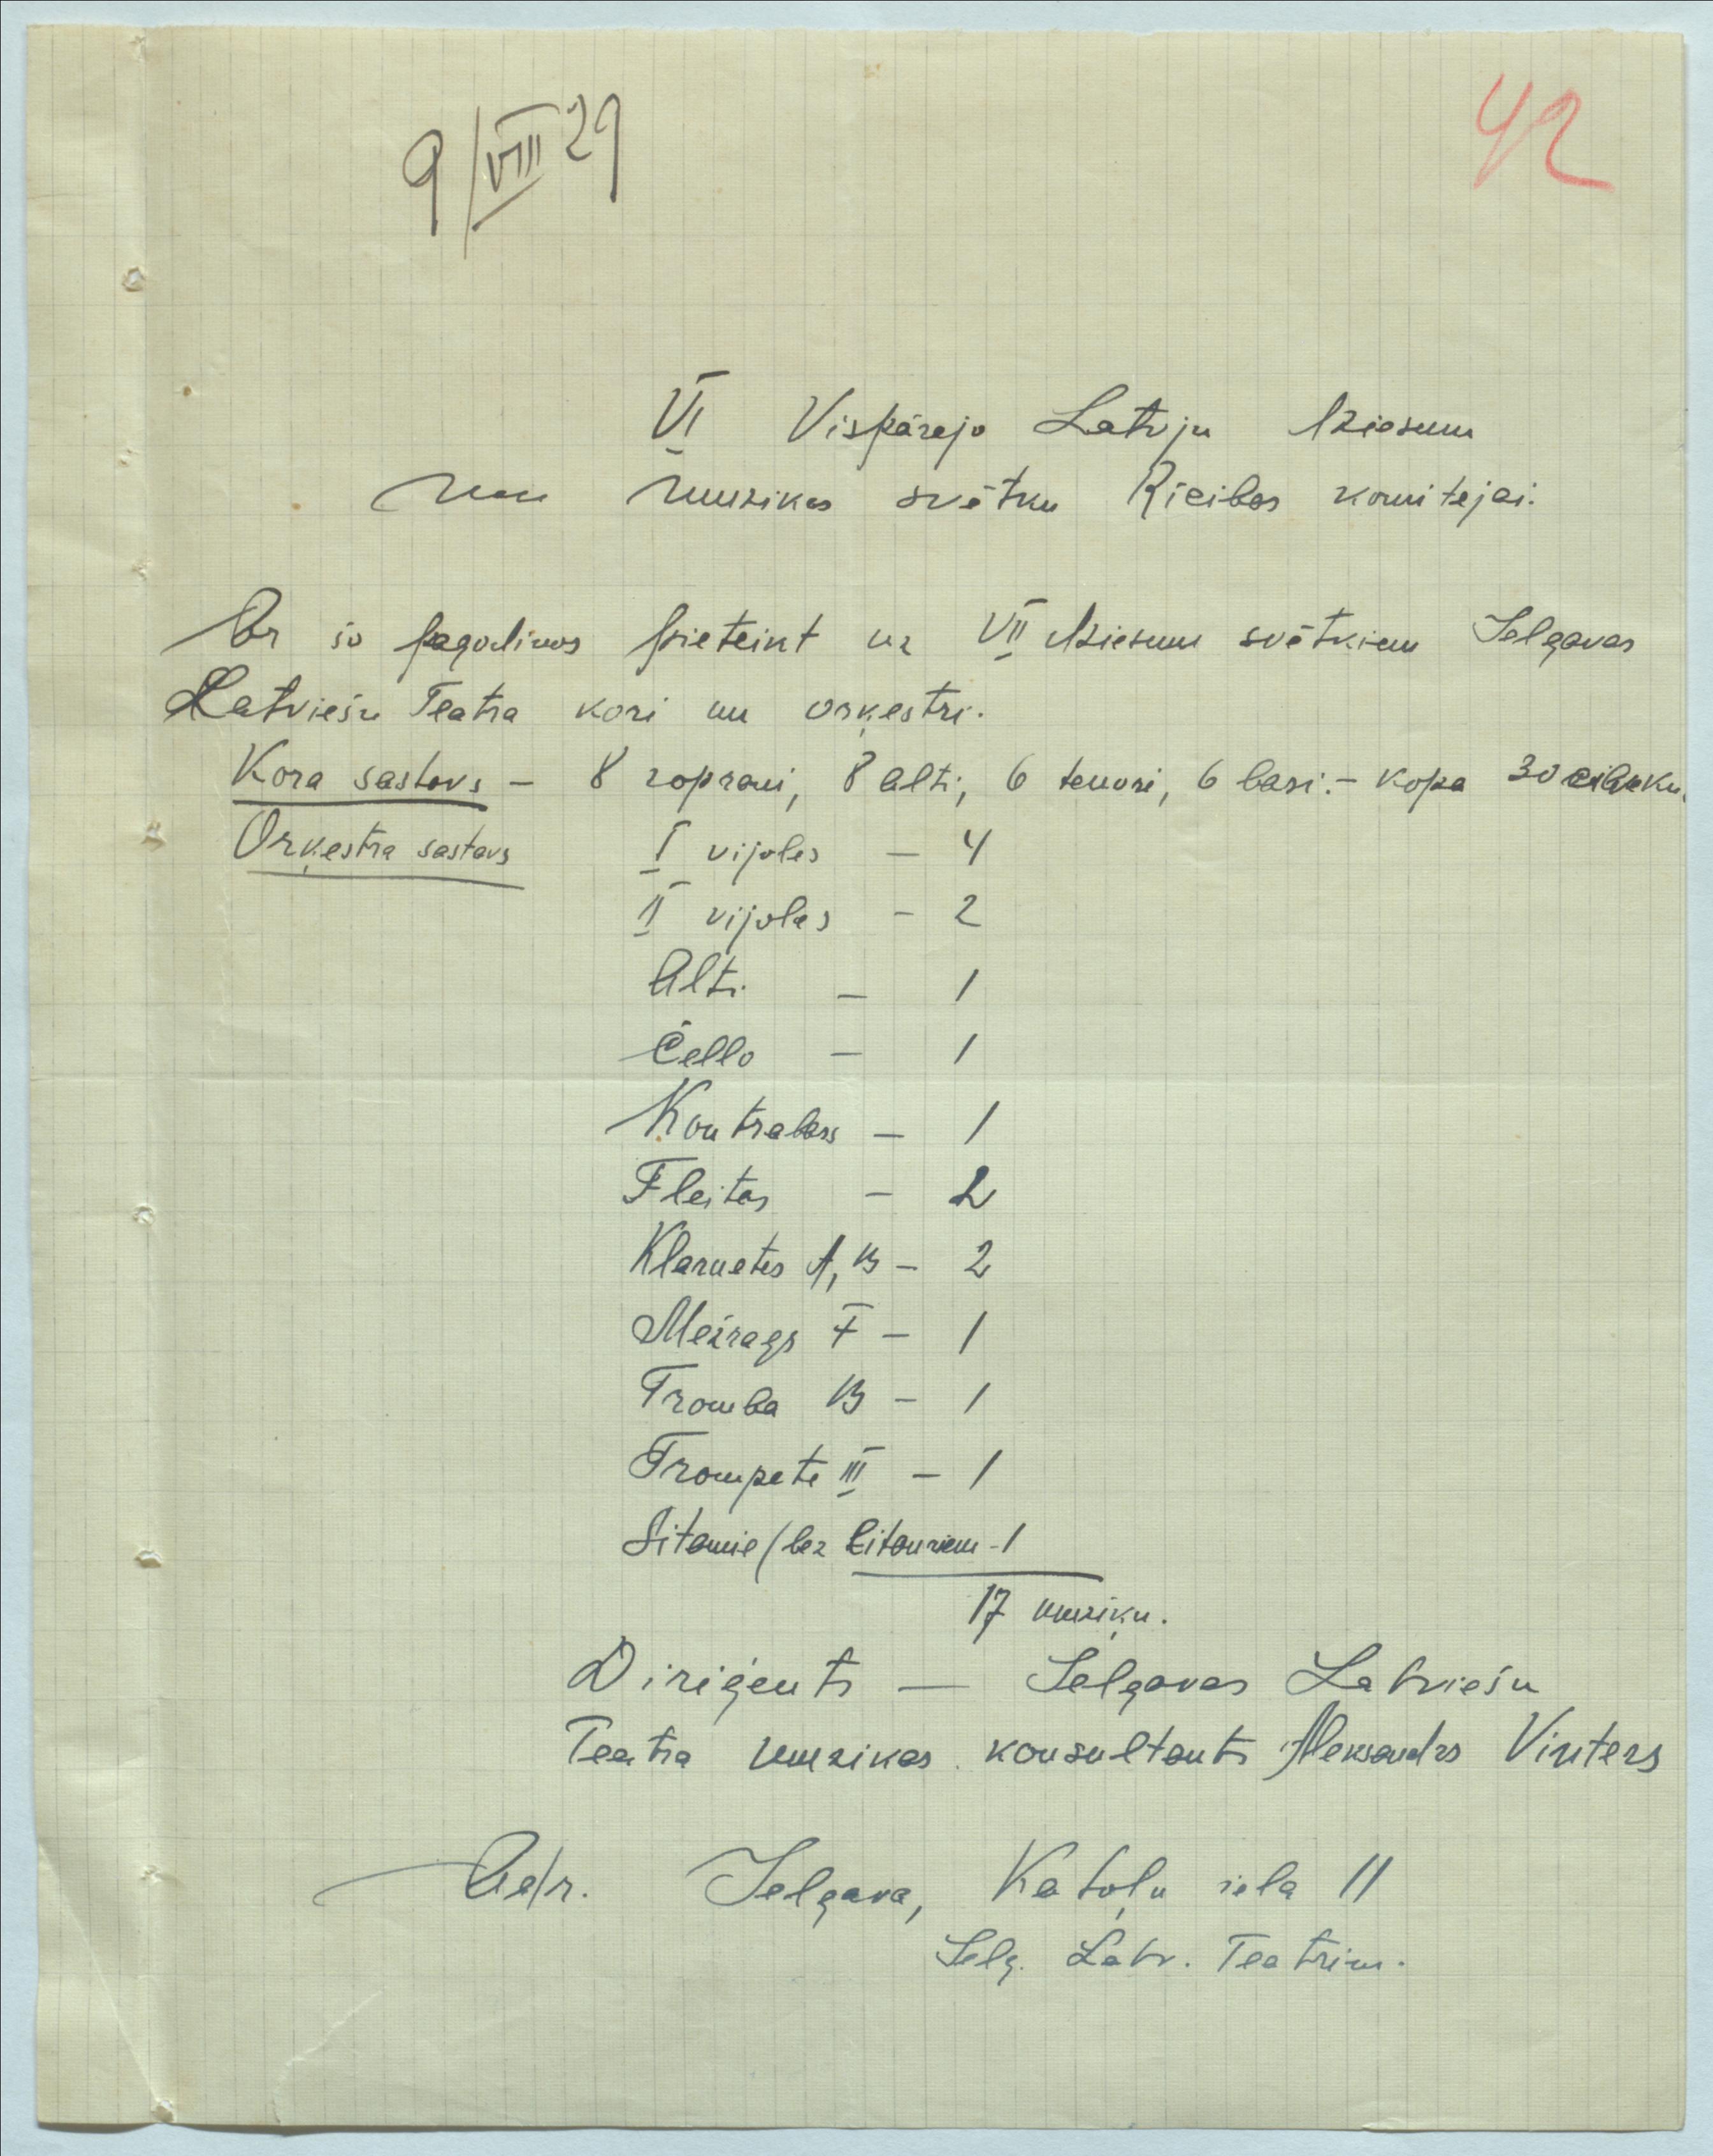 9/VIII 29
42
VI Vispārejo Latvju dziesmu
un mūzikas svētku Rīcibas komitejai.
Ar šo pagodinos pieteint uz VII dziesmu svētkiem Jelgavas
Latviešu Teatra kori un orķestri.
Kora sastavs – 8 soprani, 8 alti, 6 tenori, 6 basi. – kopa 30 cilveku.
Orķestra sastavs I vijoles – 4
II vijoles – 2
Alti – 1
Čello – 1
Kontrabass – 1
Fleitas – 2
Klarnetes A, B – 2
Mežrags F – 1
Tromba B – 1
Trompete III – 1
Sitamie (bez litauriem – 1
17 muziķu.
Diriģents — Jelgavas Latviešu
Teatra muzikas konsultants Aleksandrs Vinters
Adr. Jelgava, Katoļu iela 11
Jelg. Latv. Teatrim.